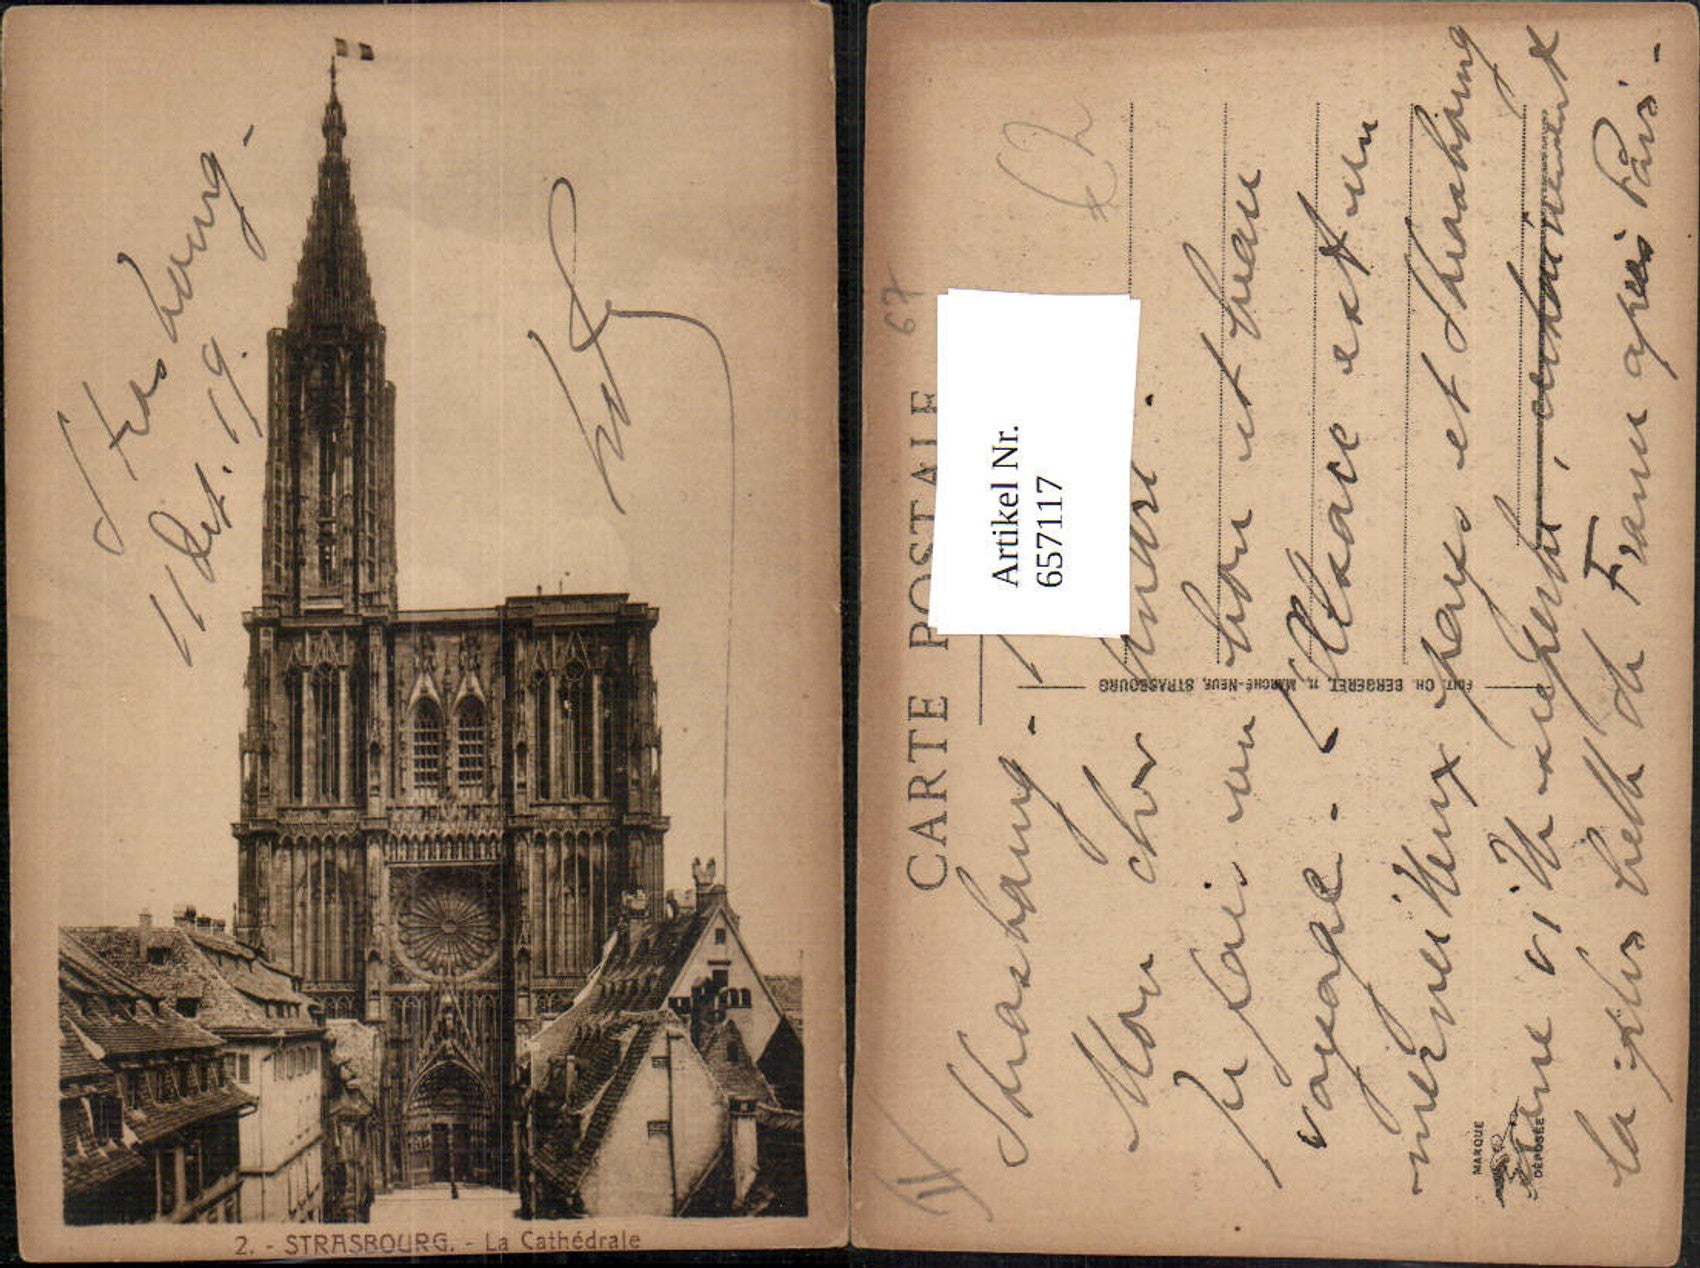 Strasbourg -
11 Oct. 19.
2. - STRASBOURG. - La Cathédrale
67
CARTE POSTALE
Artikel Nr.
657117
EDIT. CH. BERGERET, 11, MARCHÉ-NEUF, STRASBOURG
MARQUE
DÉPOSÉE
Strasbourg -
Mon cher André.
Je fais un bon et beau
voyage. - L'Alsace est un
merveilleux pays et Strasbourg
une ville superbe, certainement
la plus belle de France après Paris -